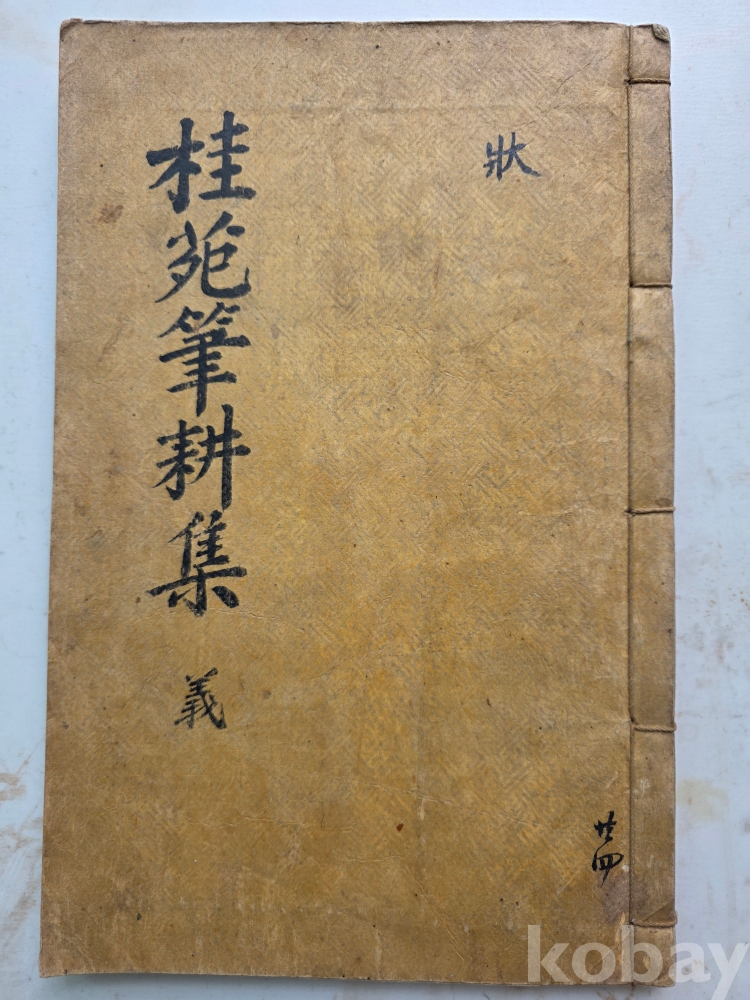 狀
桂苑筆耕集 義
廿四
kobay